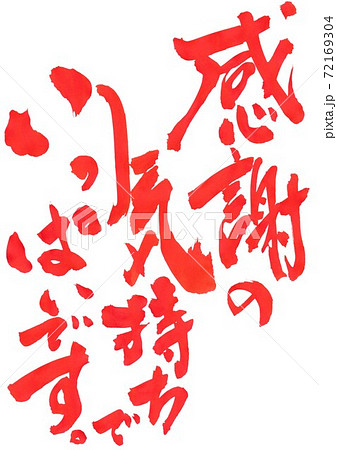 感謝の
気持ちで
いっぱいです。
PIXTA
pixta.jp - 72169304